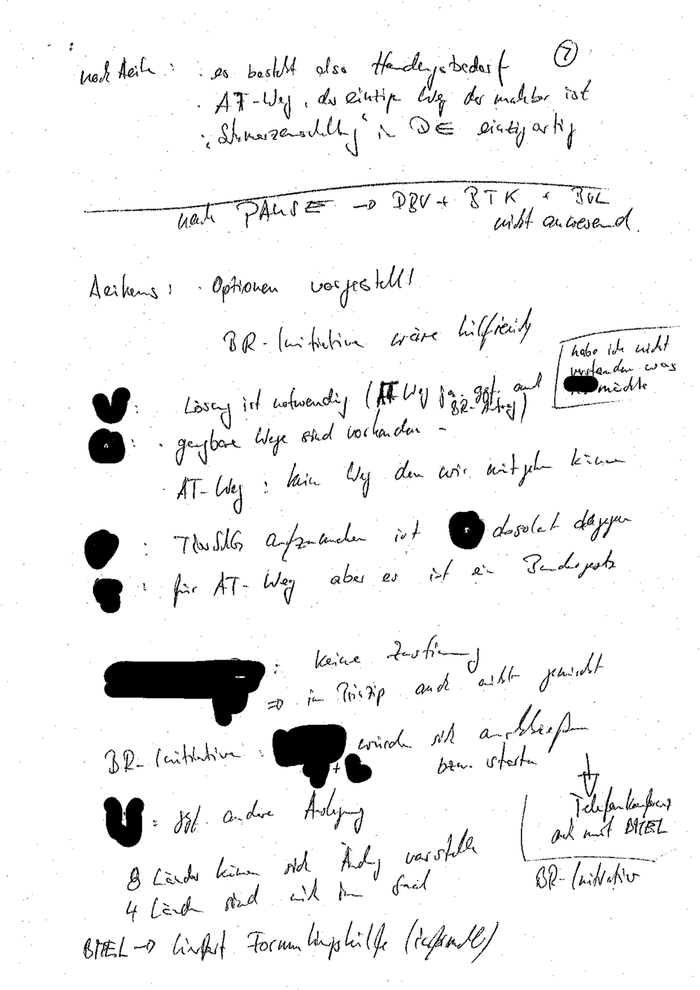 7
: · es besteht also Handlungsbedarf
· AT-Weg, der einzige Weg der machbar ist
· "Schmerzausschaltung" in DE einzigartig
nach PAUSE → DBV + BTK + BVL
nicht anwesend.
: · Optionen vorgestellt
BR-Initiative wäre hilfreich
habe ich nicht
verstanden was
möchte
: Lösung ist notwendig (AT Weg ja, ggf. auch
BR-Antrag)
: · gangbare Wege sind vorhanden -
· AT-Weg : kein Weg den wir mitgehen können
: TierSchG aufzumachen ist absolut dagegen
: für AT-Weg aber es ist ein Bundesgesetz
: keine Zustimmung
⇒ im Prinzip auch nicht gewünscht
BR-Initiative : würde sich anschließen
+ bzw. starten
Telefonkonferenz
auch mit BMEL
BR-Initiative
: ggf. andere Auslegung
8 Länder können sich Änderung vorstellen
4 Länder sind nicht im
BMEL → liefert Formulierungshilfe